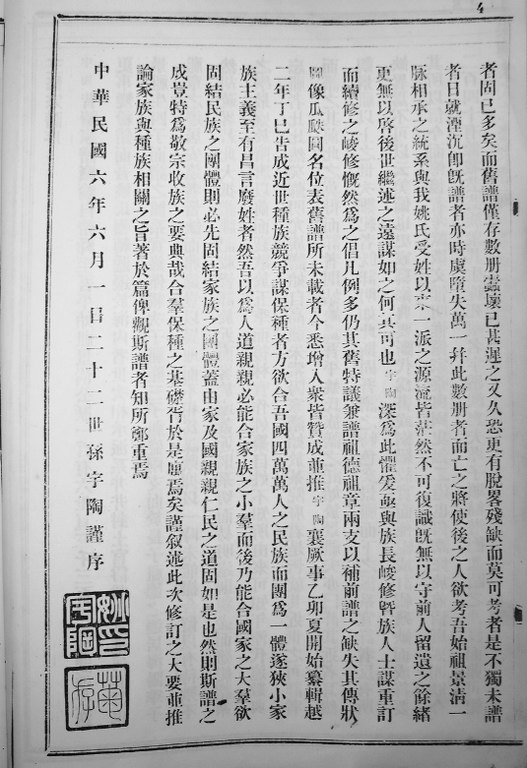 4
者固已多矣而舊譜僅存數册蠹壞已甚遲之又久恐更有脫畧殘缺而莫可考者是不獨未譜
者日就湮沉卽旣譜者亦時虞墮失萬一幷此數册者而亡之將使後之人欲考吾始祖景淸一
脉相承之統系與我姚氏受姓以來一派之源流皆茫然不可復識旣無以守前人留遺之餘緒
更無以啓後世繼述之遠謀如之何其可也宇陶深爲此懼爰亟與族長峻修曁族人士謀重訂
而續修之峻修慨然爲之倡凡例多仍其舊特議兼譜祖德祖章兩支以補前譜之缺失其傳狀
圖像瓜瓞圖名位表舊譜所未載者今悉增入衆皆贊成並推宇陶襄厥事乙卯夏開始纂輯越
二年丁巳告成近世種族競爭謀保種者方欲合吾國四萬萬人之民族而團爲一體遂狹小家
族主義至有昌言廢姓者然吾以爲人道親親必能合家族之小羣而後乃能合國家之大羣欲
固結民族之團體則必先固結家族之團體蓋由家及國親親仁民之道固如是也然則斯譜之
成豈特爲敬宗收族之要典哉合羣保種之基礎胥於是
焉矣謹叙述此次修訂之大要並推
論家族與種族相關之旨著於篇俾觀斯譜者知所鄭重焉
中華民國六年六月一日二十二世孫宇陶謹序
姚宇陶印
菊存